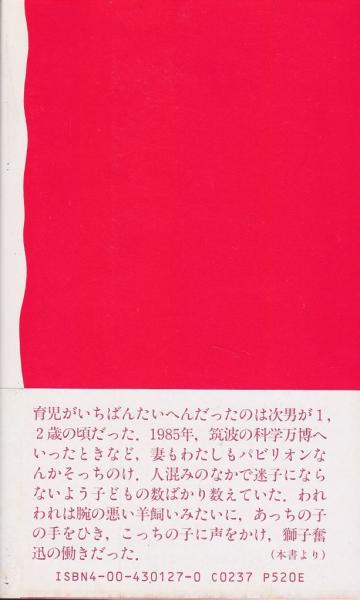 育児がいちばんたいへんだったのは次男が1,
2歳の頃だった．1985年，筑波の科学万博へ
いったときなど，妻もわたしもパビリオンな
んかそっちのけ．人混みのなかで迷子になら
ないよう子どもの数ばかり数えていた．われ
われは腕の悪い羊飼いみたいに，あっちの子
の手をひき，こっちの子に声をかけ，獅子奮
迅の働きだった．（本書より）
ISBN4-00-430127-0 C0237 P520E